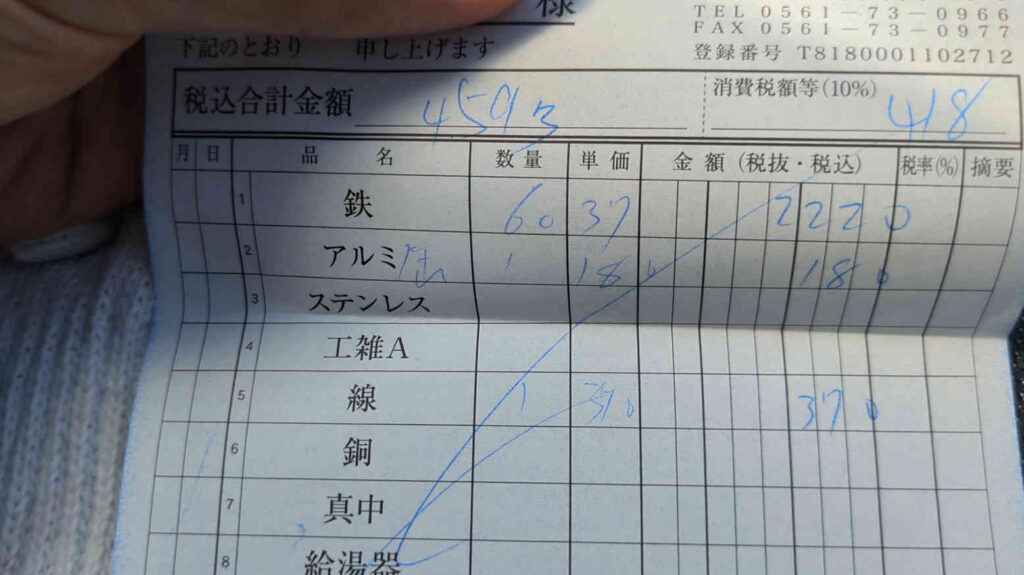 様
TEL 0561-73-0966
FAX 0561-73-0977
下記のとおり 申し上げます
登録番号 T8180001102712
税込合計金額 4593 消費税額等(10%) 418
月 日 品名 数量 単価 金額(税抜・税込) 税率(%) 摘要
1 鉄 60 37 2220
2 アルミ 1 180 180
3 ステンレス
4 工雑A
5 線 1 370 370
6 銅
7 真中
8 給湯器